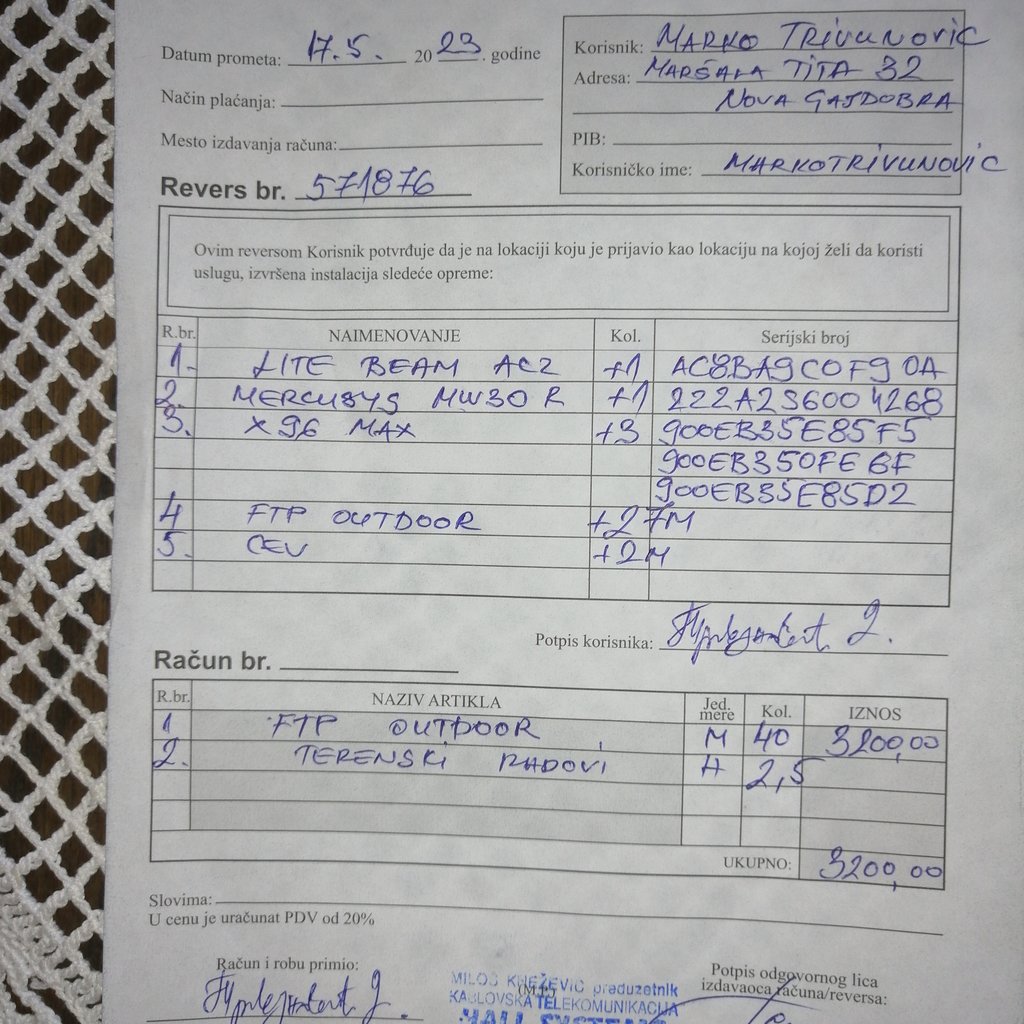 Datum prometa: 17.5. 2023. godine
Način plaćanja:
Mesto izdavanja računa:
Revers br. 571876
Korisnik: MARKO TRIVUNOVIC
Adresa: MARŠALA TITA 32
NOVA GAJDOBRA
PIB:
Korisničko ime: MARKOTRIVUNOVIC
Ovim reversom Korisnik potvrđuje da je na lokaciji koju je prijavio kao lokaciju na kojoj želi da koristi
uslugu, izvršena instalacija sledeće opreme:
R.br. NAIMENOVANJE Kol. Serijski broj
1. LITE BEAM AC2 +1 AC8BA9C0F90A
2. MERCUSYS MW30R +1 222A2S6004268
3. X96 MAX +3 900EB35E85F5
900EB350FE6F
900EB35E85D2
4 FTP OUTDOOR +27M
5. CEV +2M
Potpis korisnika:
Račun br.
R.br. NAZIV ARTIKLA Jed. mere Kol. IZNOS
1 FTP OUTDOOR M 40 3200,00
2. TERENSKI RADOVI H 2,5
UKUPNO: 3200,00
Slovima:
U cenu je uračunat PDV od 20%
Račun i robu primio:
(M.P.)
MILOŠ KNEŽEVIĆ preduzetnik
KABLOVSKA TELEKOMUNIKACIJA
Potpis odgovornog lica
izdavaoca računa/reversa: